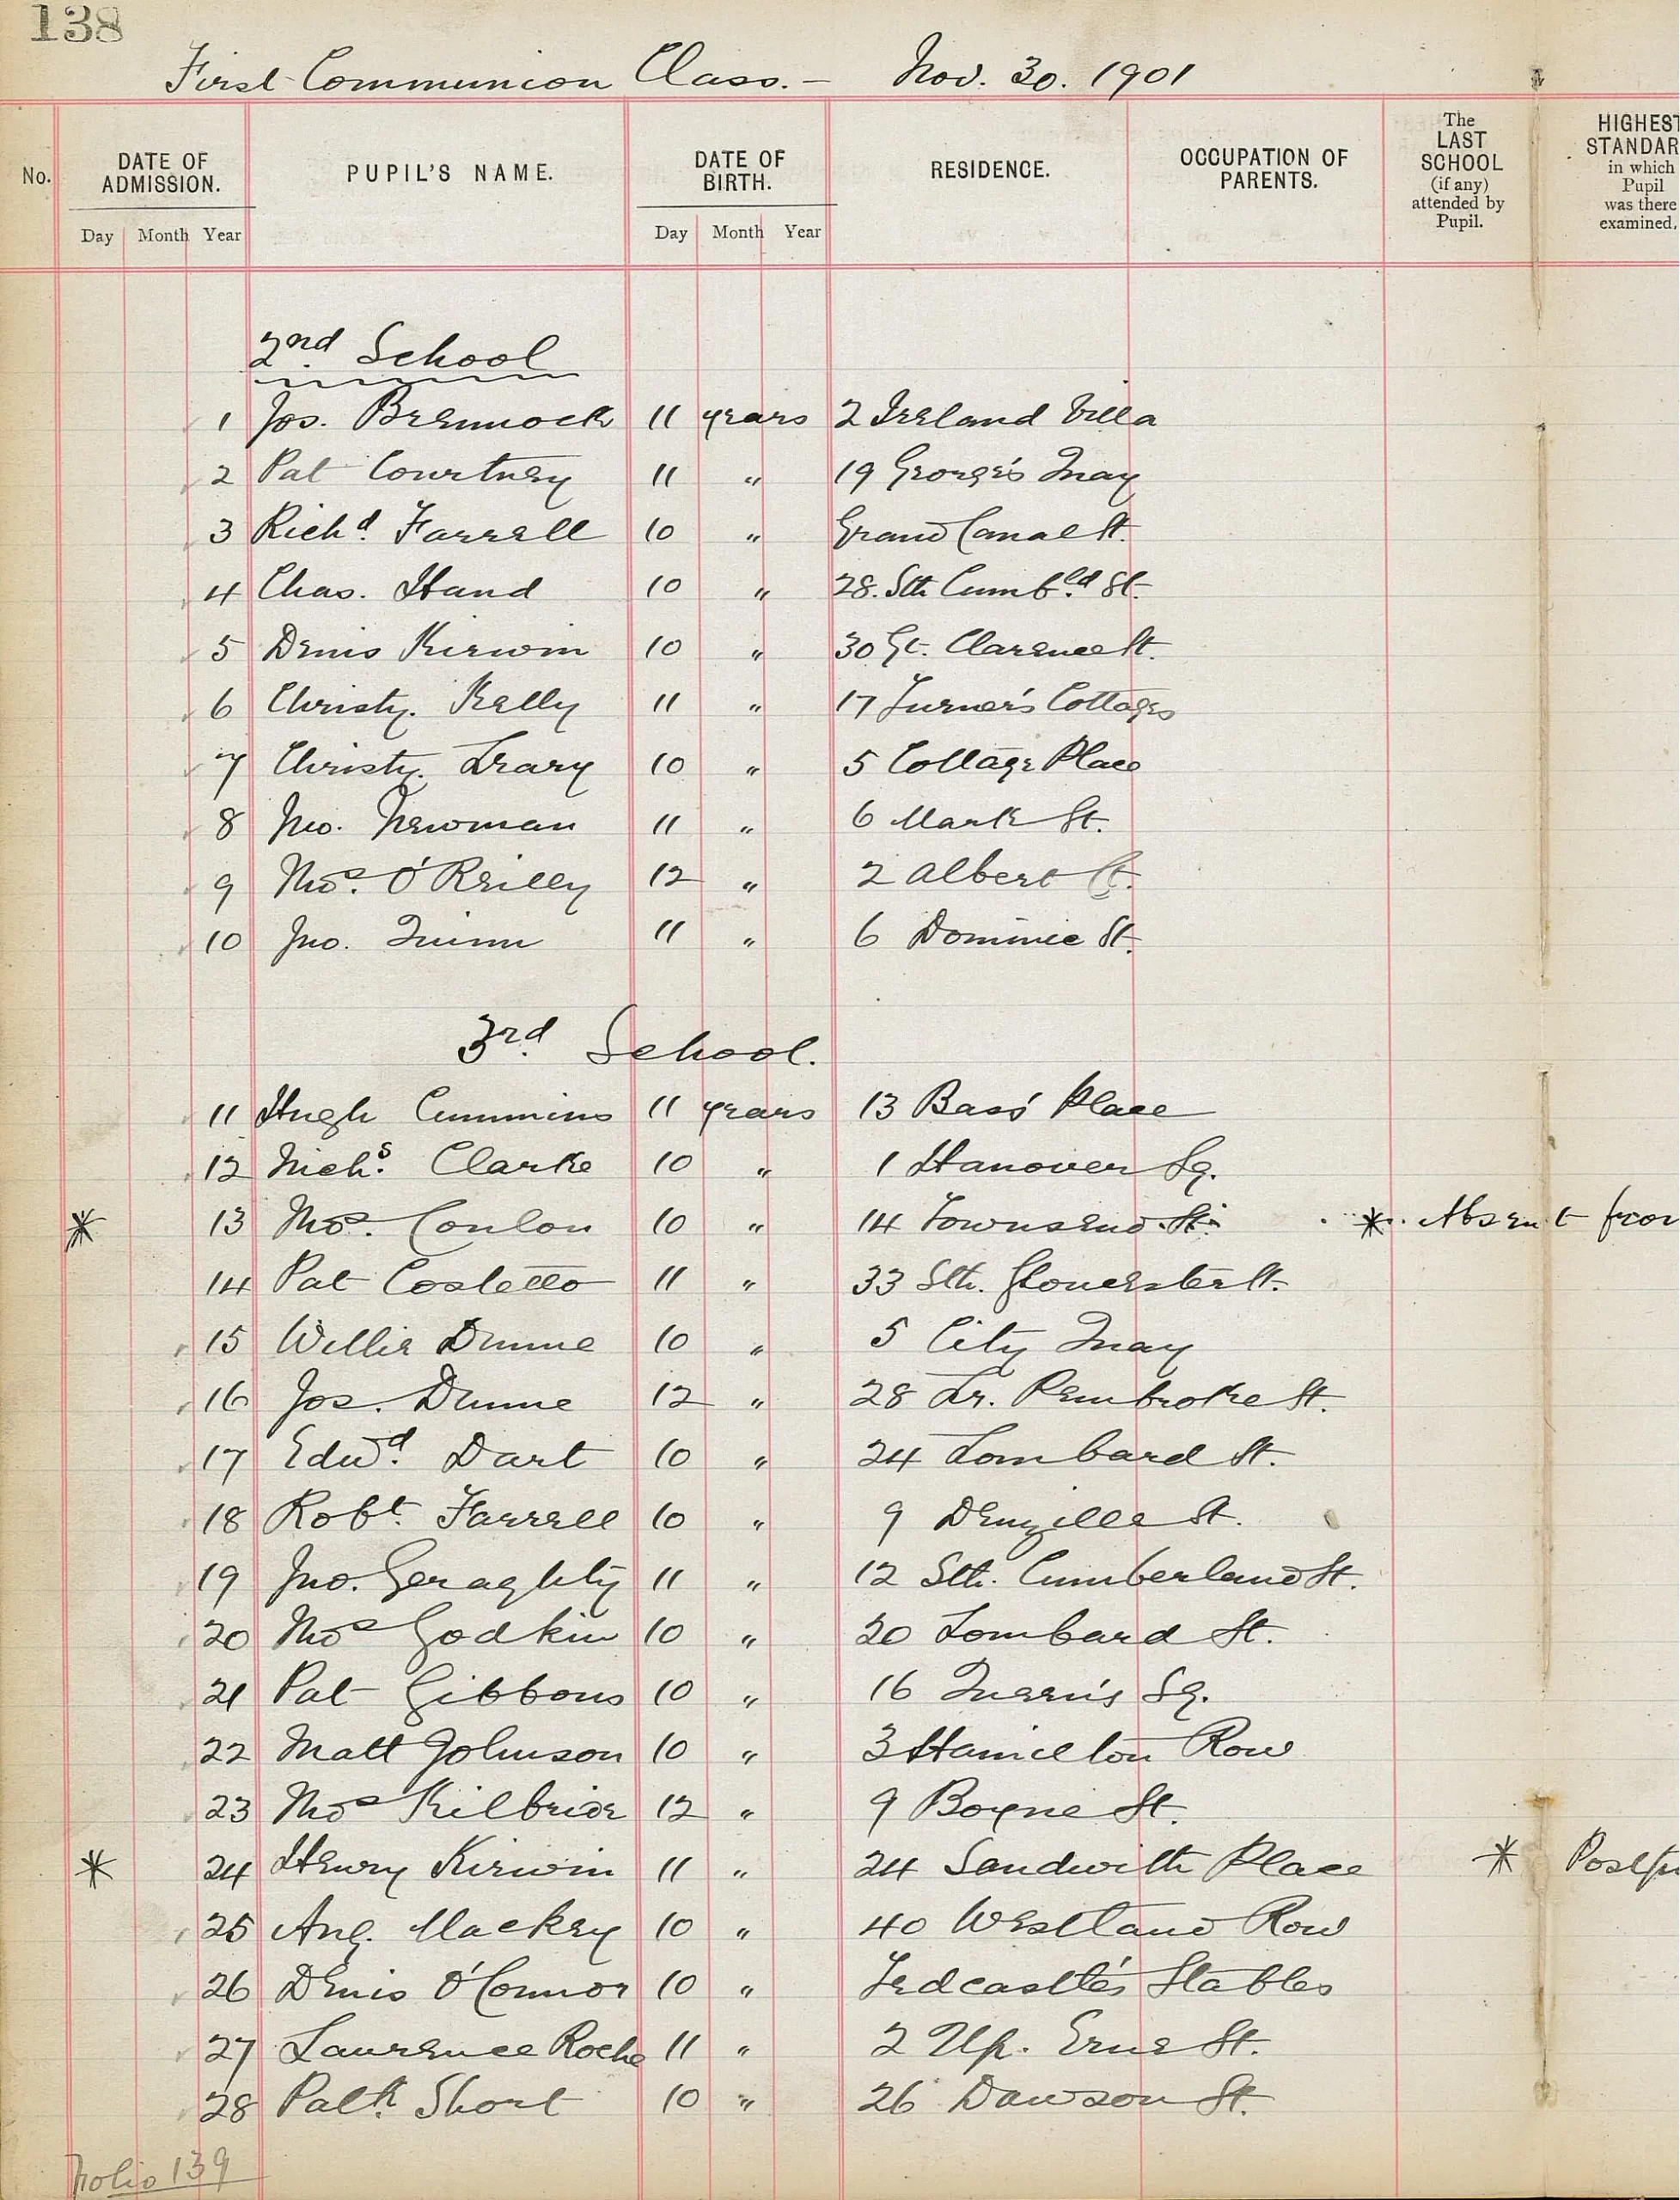 138
First Communion Class. – Nov. 30. 1901
No. DATE OF ADMISSION. PUPIL'S NAME. DATE OF BIRTH. RESIDENCE. OCCUPATION OF PARENTS. The LAST SCHOOL (if any) attended by Pupil. HIGHEST STANDAR in which Pupil was there examined,
Day Month Year Day Month Year
2nd School
1 Jos. Brennock 11 years 2 Ireland Villa
2 Pat Courtney 11 " 19 George's Quay
3 Richd. Farrell 10 " Grand Canal St.
4 Chas. Hand 10 " 28. Sth Cumbld. St.
5 Denis Kirwin 10 " 30 Gt. Clarence St.
6 Christy. Kelly 11 " 17 Turner's Cottages
7 Christy. Leary 10 " 5 Cottage Place
8 Jno. Newman 11 " 6 Mark St.
9 Thos. O'Reilly 12 " 2 Albert Ct.
10 Jno. Quinn 11 " 6 Dominic St.
3rd School.
11 Hugh Cummins 11 years 13 Bass' Place
12 Nichs. Clarke 10 " 1 Hanover Sq.
* 13 Thos. Conlon 10 " 14 Townsend St. * Absent from
14 Pat Costello 11 " 33 Sth. Gloucester St.
15 Willie Dunne 10 " 5 City Quay
16 Jos. Dunne 12 " 28 Lr. Pembroke St.
17 Edwd. Dart 10 " 24 Lombard St.
18 Robt. Farrell 10 " 9 Denzille St.
19 Jno. Geraghty 11 " 12 Sth. Cumberland St.
20 Thos Godkin 10 " 20 Lombard St.
21 Pat Gibbons 10 " 16 Queen's Sq.
22 Matt Johnson 10 " 3 Hamilton Row
23 Thos Kilbride 12 " 9 Boyne St.
* 24 Henry Kirwin 11 " 24 Sandwith Place *
25 Aug. Mackey 10 " 40 Westland Row
26 Denis O'Connor 10 " Tedcastle's Stables
27 Laurence Roche 11 " 2 Up. Erne St.
28 Patk. Short 10 " 26 Dawson St.
Folio 139